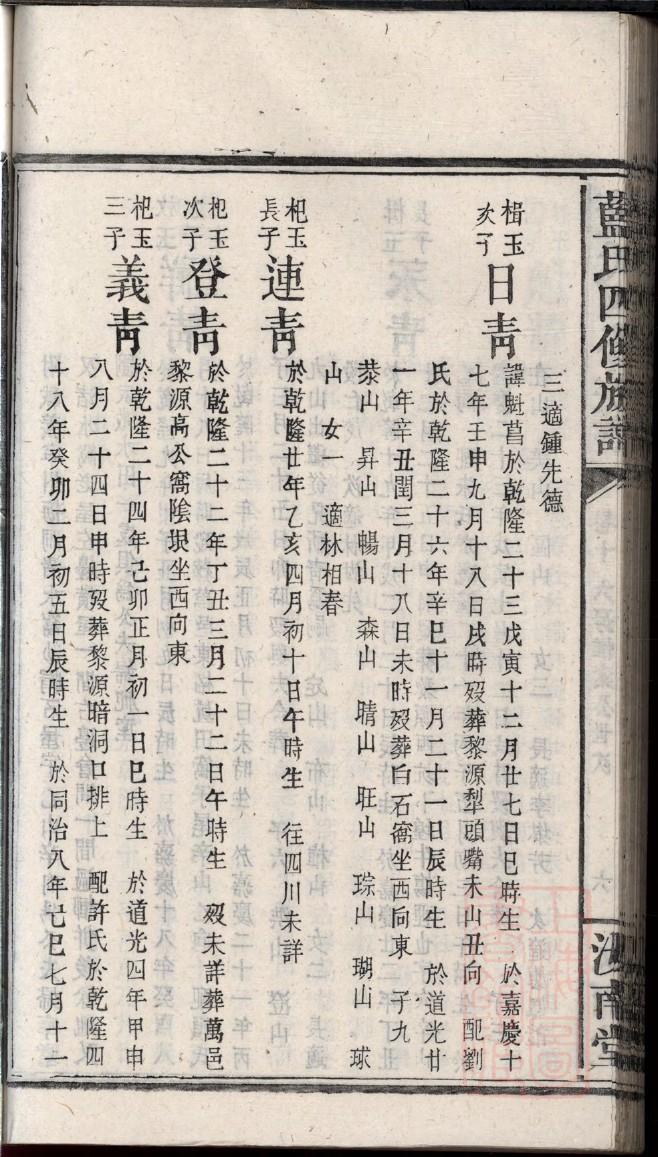 藍氏四修族譜
六
汝南堂
三適鍾先德
楫玉
次子
日靑
諱魁菖於乾隆二十三戊寅十二月廿七日巳時生 於嘉慶十
七年壬申九月十八日戌時歿葬黎源犁頭嘴未山丑向 配劉
氏於乾隆二十六年辛巳十一月二十一日辰時生 於道光廿
一年辛丑閏三月十八日未時歿葬白石窩坐西向東 子九
棻山 昇山 暢山 森山 晴山 旺山 琮山 瑚山 球
山 女一 適林相春
杞玉
長子
連靑
於乾隆廿年乙亥四月初十日午時生 往四川未詳
杞玉
次子
登靑
於乾隆二十二年丁丑三月二十二日午時生 歿未詳葬萬邑
黎源高公窩陰垠坐西向東
杞玉
三子
義靑
於乾隆二十四年己卯正月初一日巳時生 於道光四年甲申
八月二十四日申時歿葬黎源暗洞口排上 配許氏於乾隆四
十八年癸卯二月初五日辰時生 於同治八年己巳七月十一